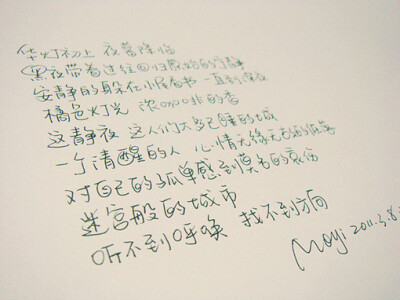 华灯初上 夜幕降临
黑夜带着过往回归原始的宁静
安静的躲在小屋看书 一直到深夜
橘色灯光 浓咖啡的香
这静夜 这人们大多已睡的城
一个清醒的人 心情无缘无故的低落
对自己的孤单感到莫名的哀伤
迷宫般的城市
听不到呼唤 找不到方向
Moyi 2011.3.8